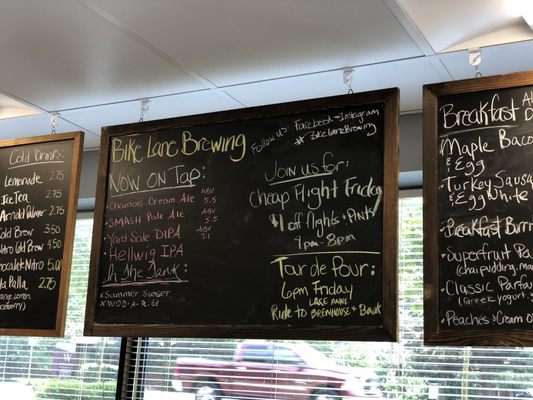 Cold Drinks:
Lemonade 2.75
Ice Tea 2.75
Arnold Palmer 2.75
Cold Brew 3.50
Nitro Cold Brew 4.50
Chocolate Nitro 5.00
Palla 2.75
Bike Lane Brewing
Now On Tap:
ABV
Chamois Cream Ale 5.5
ABV
SMASH Pale Ale 5.5
ABV
Yard Sale DIPA 7.1
Hellwig IPA
In the Tank:
x Summer Sunset
x W.O.D-A-Ride
Follow Us: Facebook + Instagram
# BikeLaneBrewing
Join us for:
Cheap Flight Friday
$1 off flights + pints
4pm - 8pm
Tour de Four:
6pm Friday
Lake Anne
Ride to Brewhouse + Back
Breakfast
Maple Baco
& Egg
Turkey Sausa
& Egg White
Breakfast Burri
Superfruit Pa
(chai pudding, ma
Classic Parfa
(Greek yogurt,
Peaches + Cream O